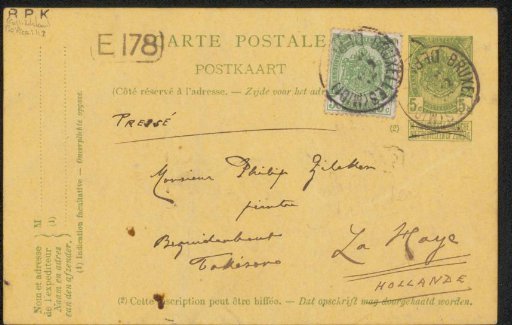 R P K
E 178
CARTE POSTALE
POSTKAART
(Côté réservé à l'adresse. — Zijde voor het
PRESSÉ
(2)
5c 5c
Monsieur Philip Zilcken
peintre
Bezuidenhout
La Haye
HOLLANDE
Nom et adresse de l'expéditeur } M
Naam en adres van den afzender. } (1)
(1) Indication facultative — Onverplichte opgave.
(2) Cette inscription peut être biffée. — Dat opschrift mag doorgehaald worden.